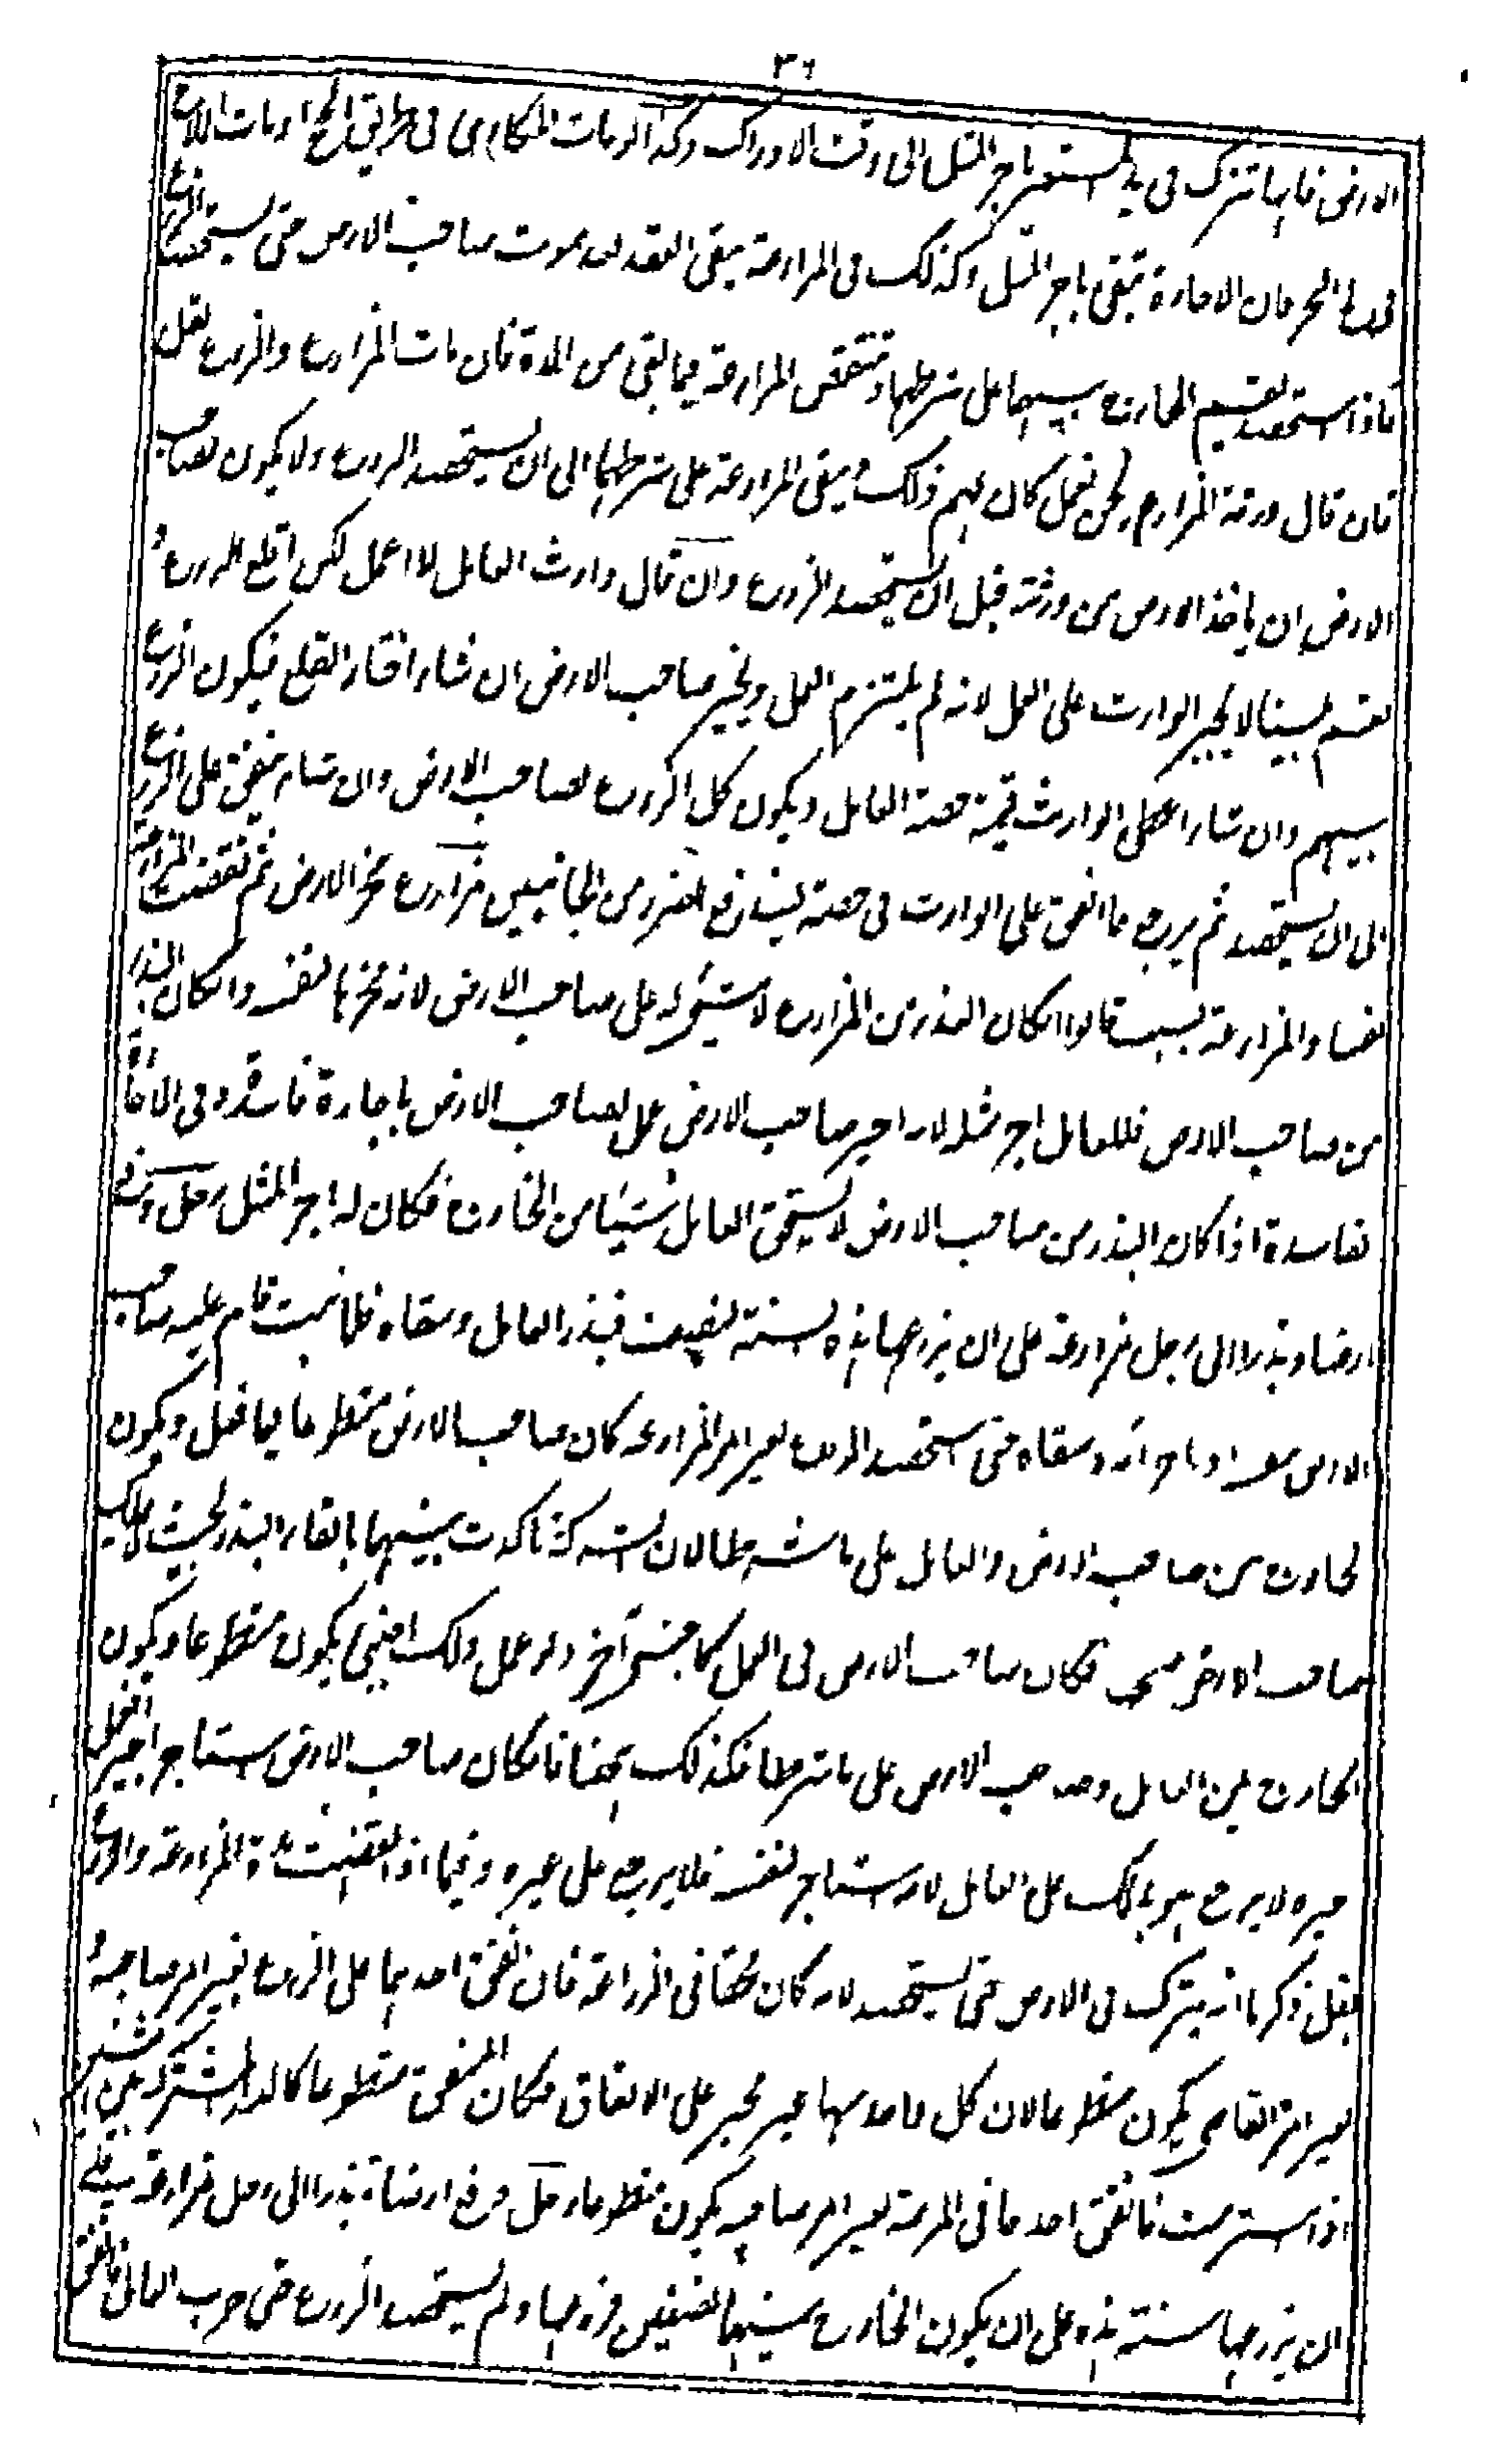 ٣٦
الارض فانها تترك فى يد المستعير باجر المثل الى وقت الادراك وكذا لو مات المكارى فى طريق الحج او مات الملاح
فى البحر فان الاجارة تبقى باجر المثل وكذلك فى المزارعة يبقى العقد بعد موت صاحب الارض حتى يستحصد الزرع
فاذا استحصد يقسم الخارج بينهما على شرطهما وتنتقض المزارعة فيما بقى من المدة فان مات المزارع والزرع بقل
فان قال ورثة المزارع نحن نعمل كان لهم ذلك ويبقى المزارعة على شرطهما الى ان يستحصد الزرع ولا يكون لصاحب
الارض ان ياخذ الارض من ورثته قبل ان يستحصد الزرع وان قال وارث العامل لا اعمل لكن اقلع الزرع و
يقسم بيننا لا يجبر الوارث على العمل لانه لم يلتزم العمل ويخير صاحب الارض ان شاء اختار القلع فيكون الزرع
بينهم وان شاء اعطى الوارث قيمة حصة العامل ويكون كل الزرع لصاحب الارض وان شاء ينفق على الزرع
الى ان يستحصد ثم يرجع ما انفق على الوارث فى حصته ليندفع الضرر من الجانبين مزارع نخر الارض ثم نقضت المزارعة
لفساد المزارعة بسبب قالوا ان كان البذر من المزارع لا شىء له على صاحب الارض لانه نخرها لنفسه وان كان البذر
من صاحب الارض فللعامل اجر مثله لانه اجير صاحب الارض عمل لصاحب الارض باجارة فاسدة وفى الاجارة
الفاسدة اذا كان البذر من صاحب الارض لا يستحق العامل شيئا من الخارج فكان له اجر المثل رجل دفع
ارضا وبذرا الى رجل مزارعة على ان يزرعها هذه السنة بنصيب فبذر العامل وسقاه فلما نبت قام عليه صاحب
الارض بنفسه او باجرائه وسقاه حتى استحصد الزرع بغير امر المزارعة كان صاحب الارض متطوعا فيما فعل ويكون
الخارج بين صاحب الارض والعامل على ما شرطا لان الشركة تاكدت بينهما بالقاء البذر بحيث لا يملك
صاحب الارض فسخه فكان صاحب الارض فى العمل كاجنبى آخر ولو عمل ذلك اجنبى يكون متطوعا ويكون
الخارج بين العامل وصاحب الارض على ما شرطا فكذلك ههنا فان كان صاحب الارض استاجر اجيرا لعمل
غيره لا يرجع هو بذلك على العامل لانه استاجر لنفسه فلا يرجع على غيره وفيما اذا انقضت مدة المزارعة والزرع
بقل ذكرنا انه يترك فى الارض حتى يستحصد لانه كان محقا فى الزراعة فان انفق احدهما على الزرع بغير امر صاحبه و
بغير امر القاضى يكون متطوعا لان كل واحد منهما غير مجبر على الانفاق فكان المنفق متطوعا كالدار المشتركة بين اثنين
اذا استرمت فانفق احدهما فى المرمة بغير امر صاحبه يكون متطوعا رجل دفع ارضا وبذرا الى رجل مزارعة على
ان يزرعها سنته هذه على ان يكون الخارج بينهما نصفين فزرعها ولم يستحصد الزرع حتى هرب العامل فانفق